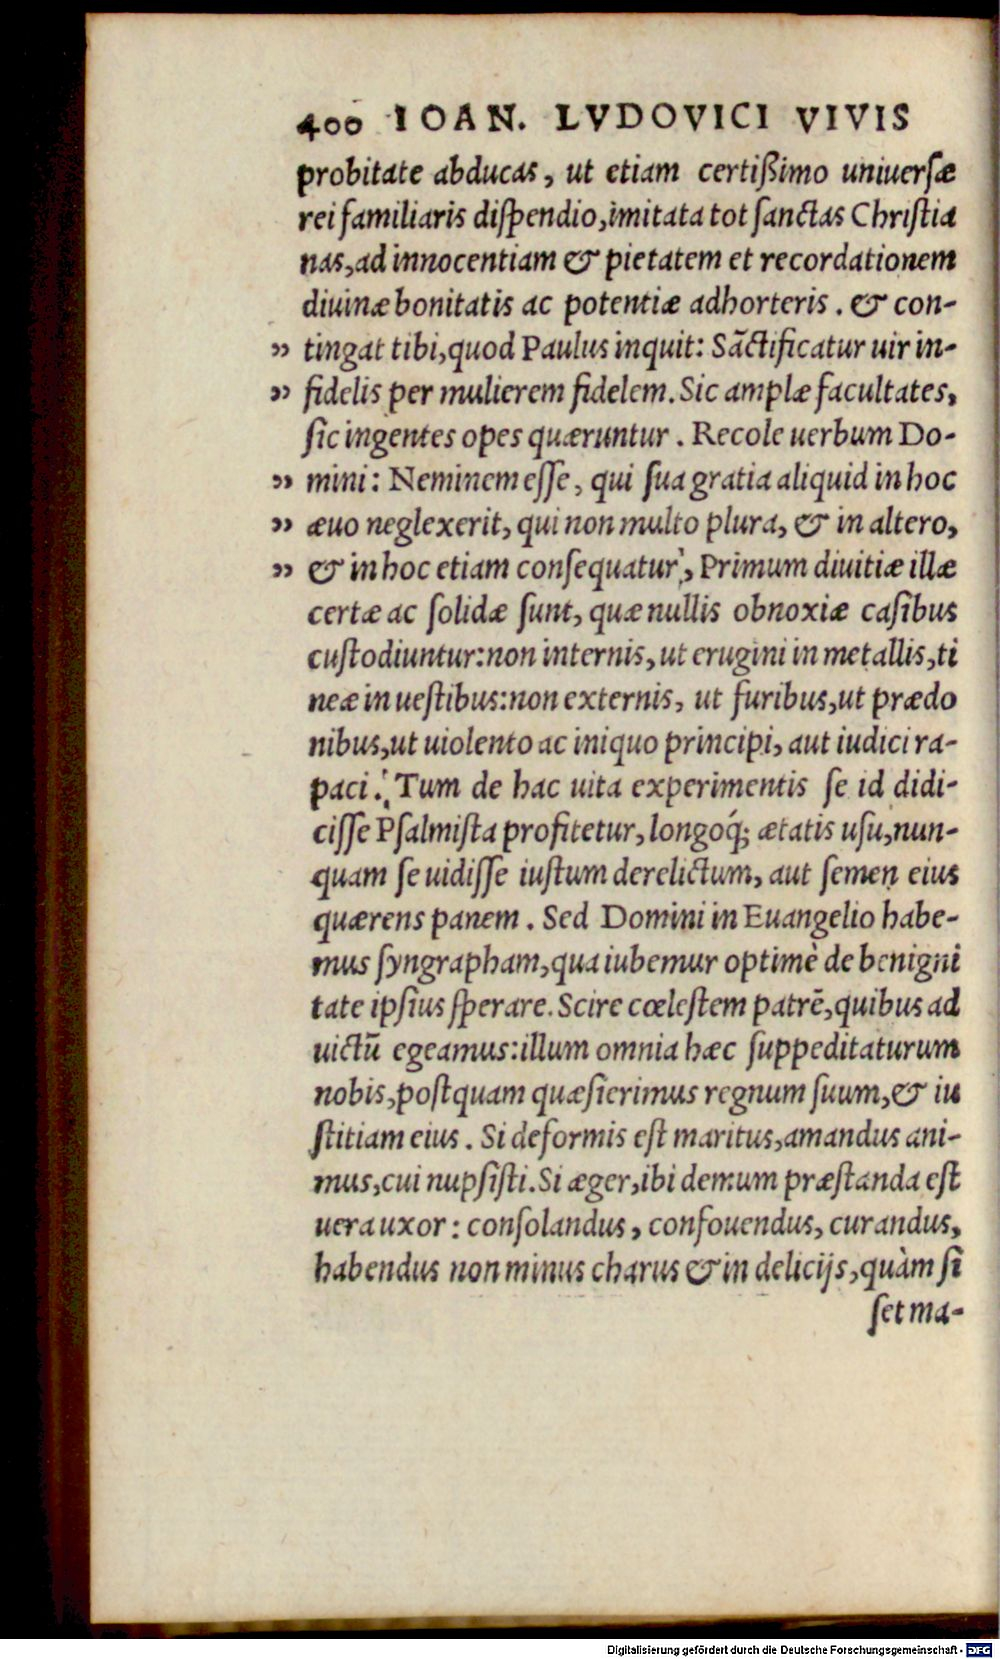 400 IOAN. LVDOVICI VIVIS
probitate abducas, ut etiam certißimo uniuersæ
rei familiaris dispendio, imitata tot sanctas Christia
nas, ad innocentiam & pietatem et recordationem
diuinæ bonitatis ac potentiæ adhorteris. & con-
„ tingat tibi, quod Paulus inquit: Sãctificatur uir in-
„ fidelis per mulierem fidelem. Sic amplæ facultates,
sic ingentes opes quæruntur. Recole uerbum Do-
„ mini: Neminem esse, qui sua gratia aliquid in hoc
„ æuo neglexerit, qui non multo plura, & in altero,
„ & in hoc etiam consequatur, Primum diuitiæ illæ
certæ ac solidæ sunt, quæ nullis obnoxiæ casibus
custodiuntur: non internis, ut erugini in metallis, ti
neæ in uestibus: non externis, ut furibus, ut prædo
nibus, ut uiolento ac iniquo principi, aut iudici ra-
paci. Tum de hac uita experimentis se id didi-
cisse Psalmista profitetur, longoq́; ætatis usu, nun-
quam se uidisse iustum derelictum, aut semen eius
quærens panem. Sed Domini in Euangelio habe-
mus syngrapham, qua iubemur optimè de benigni
tate ipsius sperare. Scire cœlestem patrẽ, quibus ad
uictũ egeamus: illum omnia hæc suppeditaturum
nobis, postquam quæsierimus regnum suum, & iu
stitiam eius. Si deformis est maritus, amandus ani-
mus, cui nupsisti. Si æger, ibi demum præstanda est
uera uxor: consolandus, confouendus, curandus,
habendus non minus charus & in delicijs, quàm si
set ma-
Digitalisierung gefördert durch die Deutsche Forschungsgemeinschaft - DFG